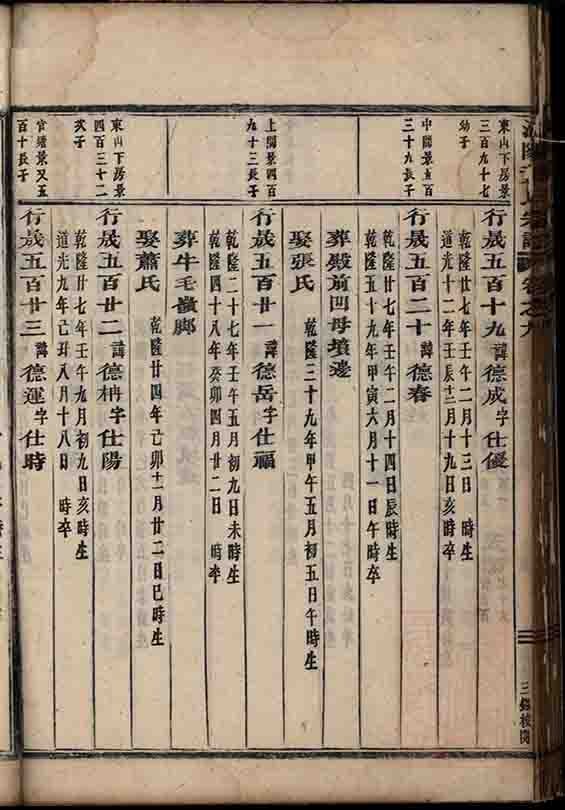 卷之九
三錫校閱
東山下房景
三百九十七
幼子
行晟五百十九諱德成字仕優
乾隆廿七年壬午二月十三日　時生
道光十二年壬辰十二月十九日亥時卒
中關景五百
三十九長子
行晟五百二十諱德春
乾隆廿七年壬午二月十四日辰時生
乾隆五十九年甲寅六月十一日午時卒
葬殿前凹母墳邊
娶張氏　乾隆三十九年甲午五月初五日午時生
上關景四百
九十三長子
行晟五百廿一諱德岳字仕福
乾隆二十七年壬午五月初九日未時生
乾隆四十八年癸卯四月廿二日　時卒
葬牛毛嶺脚
娶蕭氏　乾隆廿四年己卯十二月廿二日巳時生
東山下房景
四百三十二
次子
行晟五百廿二諱德柟字仕陽
乾隆廿七年壬午九月初九日亥時生
道光九年己丑八月十八日　時卒
官塘景又五
百十長子
行晟五百廿三諱德運字仕時